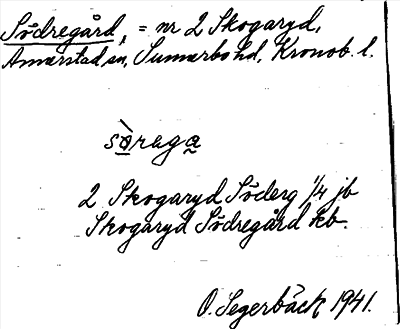 Södregård, = nr 2 Skogaryd,
Annerstad sn, Sunnerbo hd, Kronob. l.
sòraga
2 Skogaryd Söderg 1/4 jb
Skogaryd Södregård kb.
O. Segerbäck 1941.